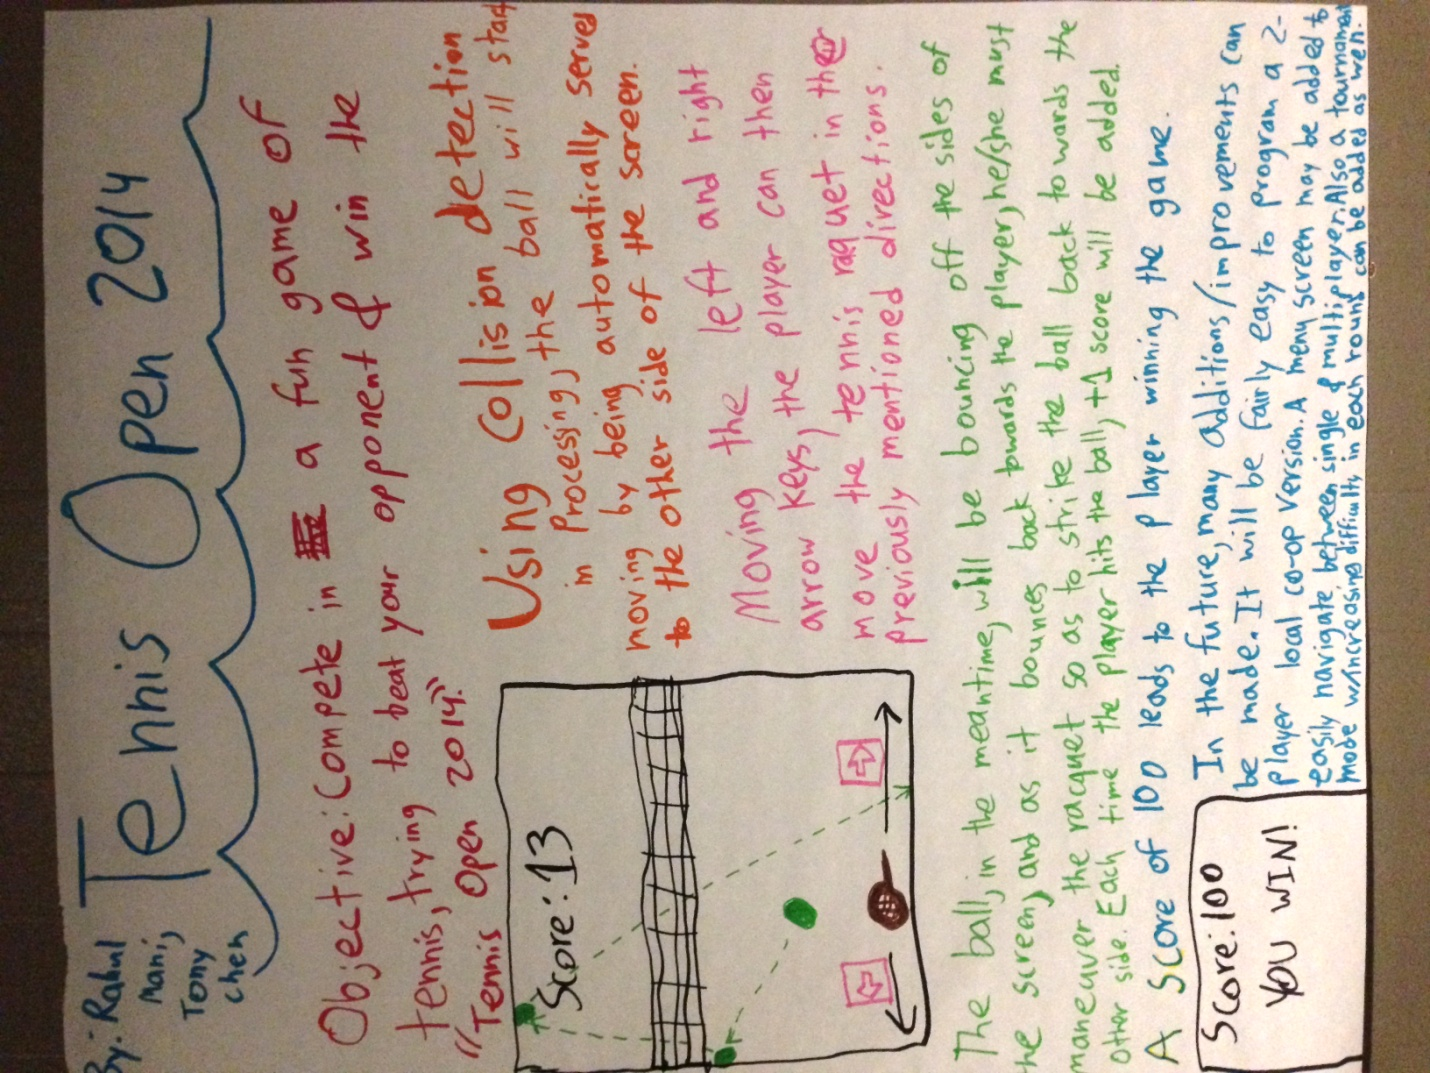 By: Rahul
Mani,
Tony
Chen
Tennis Open 2014
Objective: Compete in a fun game of
tennis, trying to beat your opponent & win the
"Tennis Open 2014".
Score: 13
Using collision detection
in Processing, the ball will start
moving by being automatically served
to the other side of the screen.
Moving the left and right
arrow keys, the player can then
move the tennis raquet in the
previously mentioned directions.
The ball, in the meantime, will be bouncing off the sides of
the screen, and as it bounces back towards the player, he/she must
maneuver the racquet so as to strike the ball back towards the
other side. Each time the player hits the ball, +1 score will be added.
A score of 100 leads to the player winning the game.
Score: 100
YOU WIN!
In the future, many additions/improvements can
be made. It will be fairly easy to program a 2-
player local co-op version. A menu screen may be added to
easily navigate between single & multiplayer. Also a tournament
mode w/increasing difficulty in each round can be added as well.